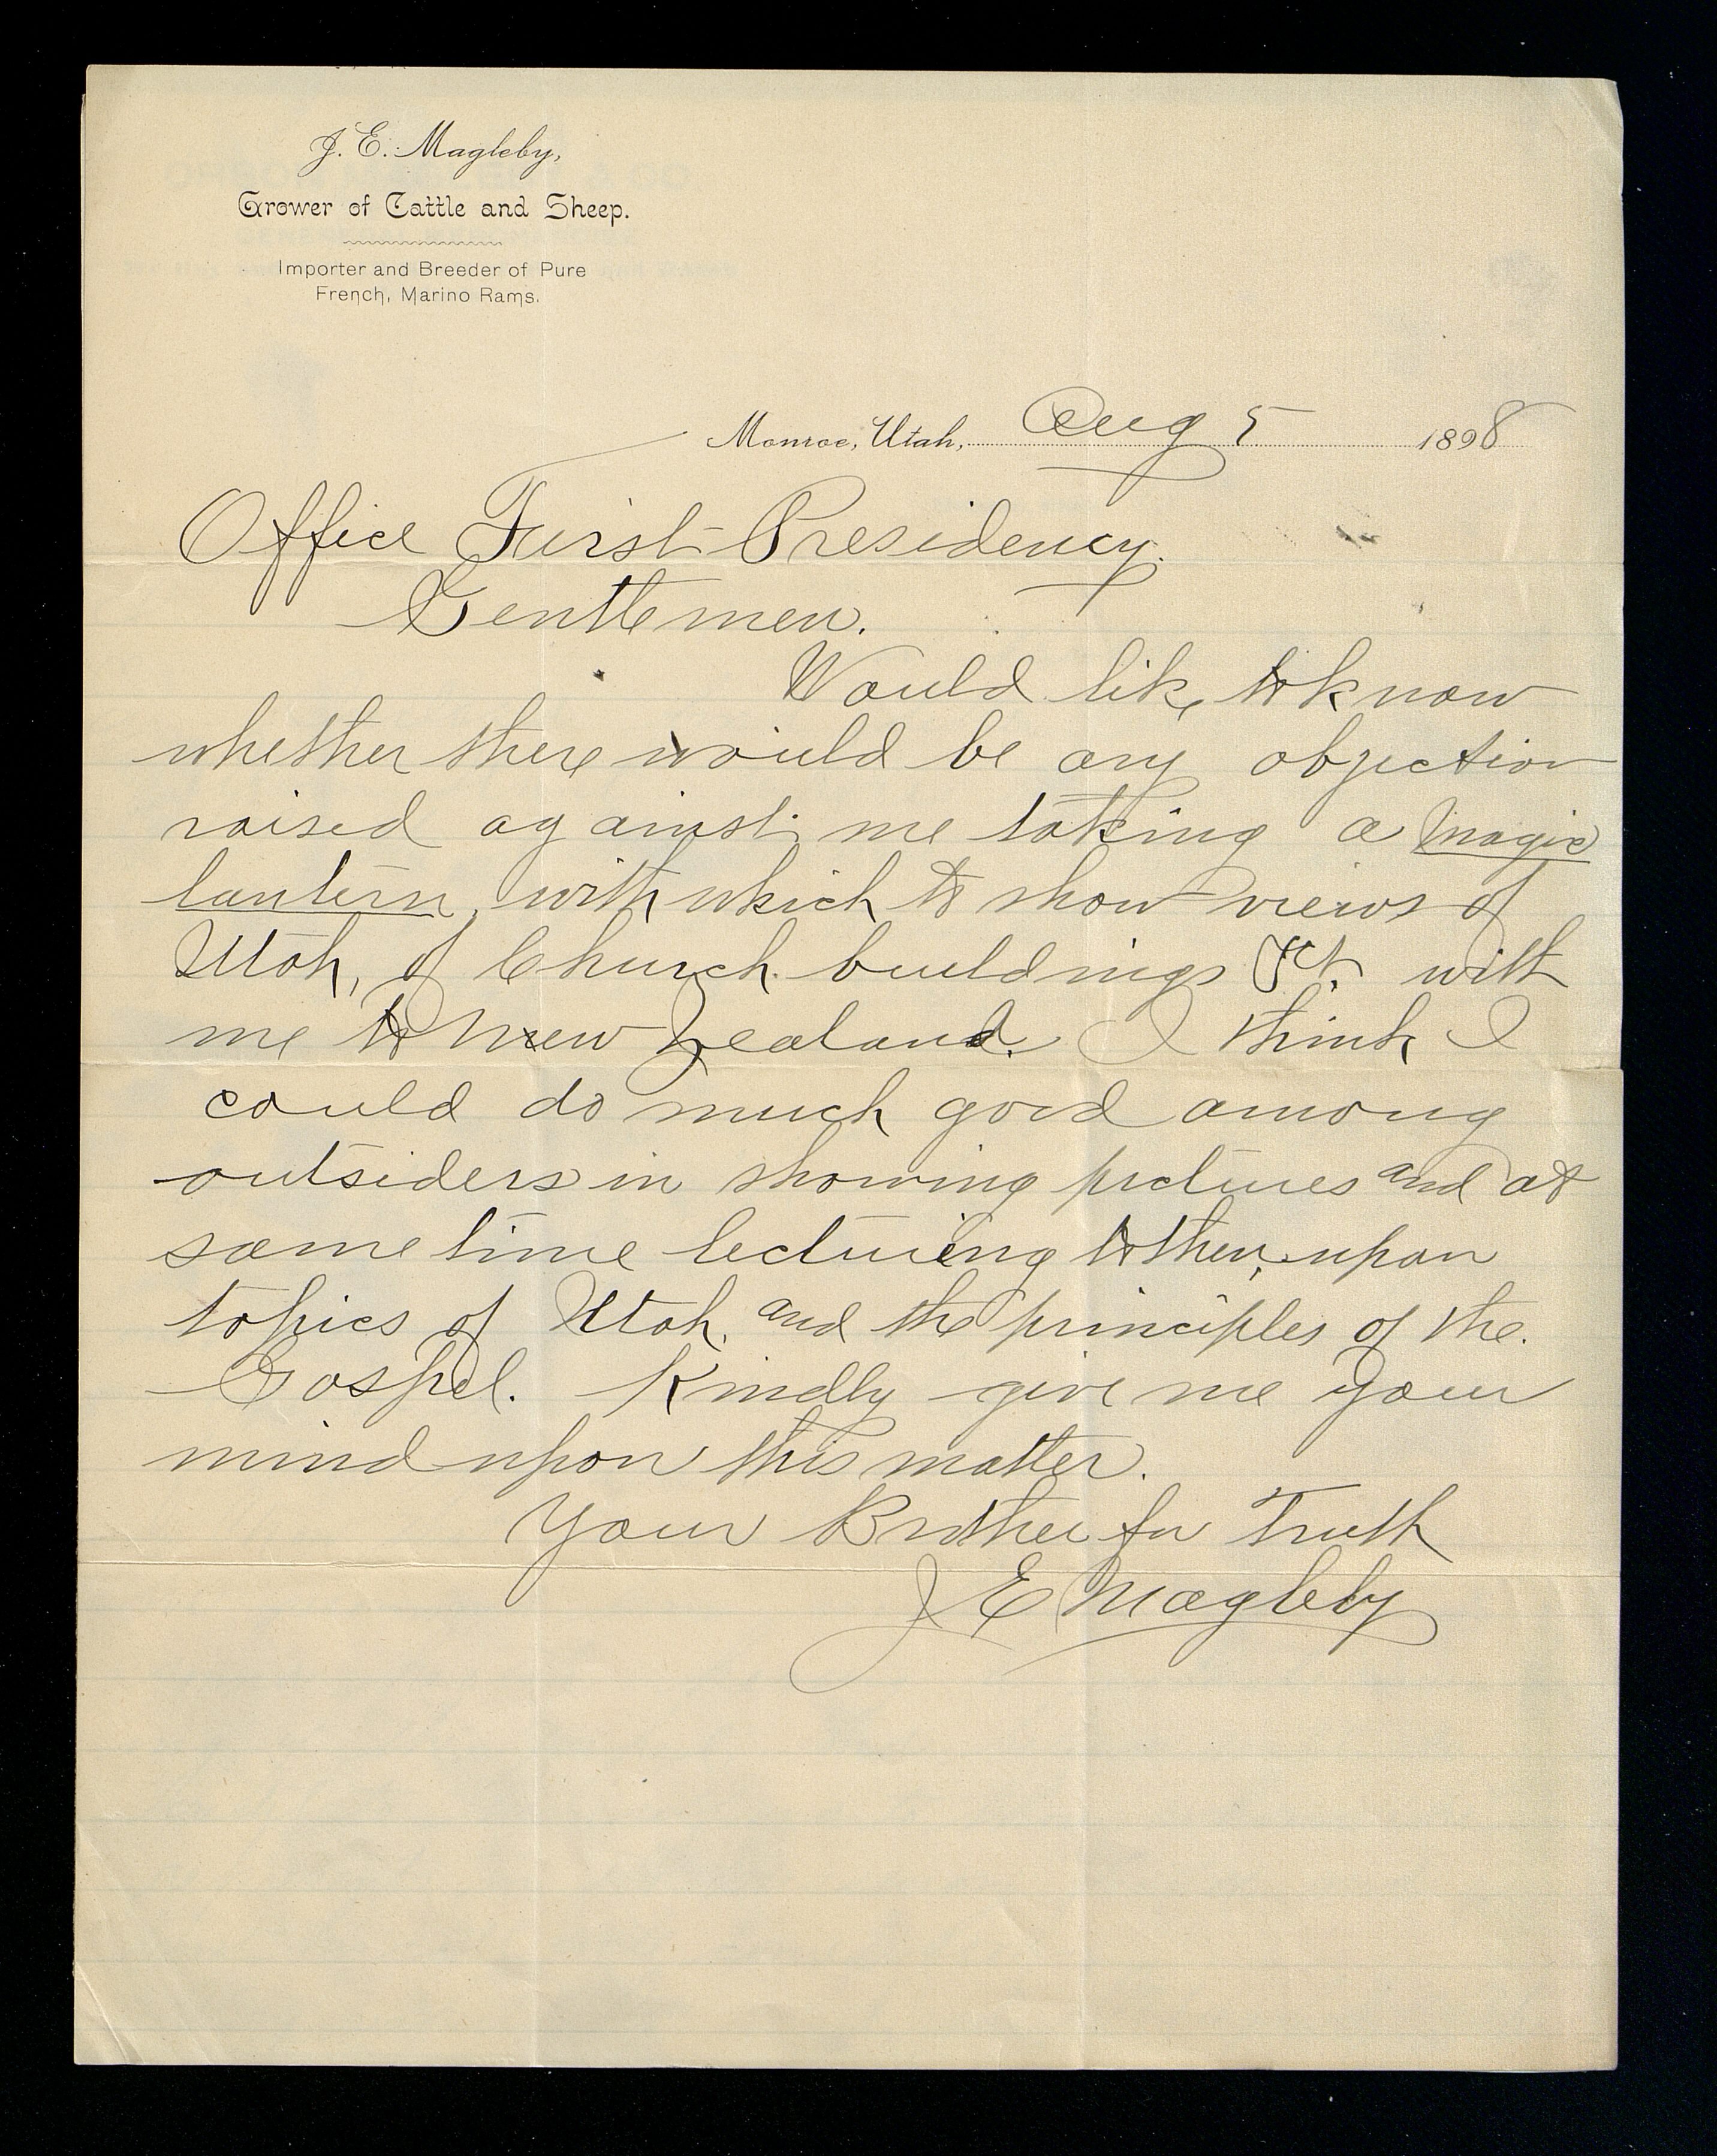 J. E. Magleby,
Grower of Cattle and Sheep.
Importer and Breeder of Pure
French, Marino Rams.
Monroe, Utah, Aug 5 1898
Office First Presidency.
Gentlemen.
Would like to know
whether there would be any objection
raised against me taking a magic
lantern, with which to show views of
Utah, of Church buildings &ct. with
me to New Zealand. I think I
could do much good among
outsiders in showing pictures and at
same time lecturing to them upon
topics of Utah, and the principles of the
Gospel. Kindly give me your
mind upon this matter.
Your Brother for Truth
J E Magleby